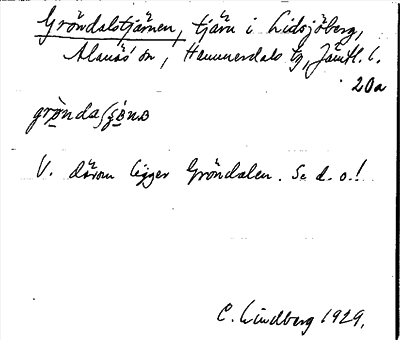 Gröndalstjärnen, tjärn i Lidsjöberg,
Alanäs sn, Hammerdals tg, Jämtl. l.
20a
V. därom ligger Gröndalen. Se d. o.!
C. Lindberg 1929.